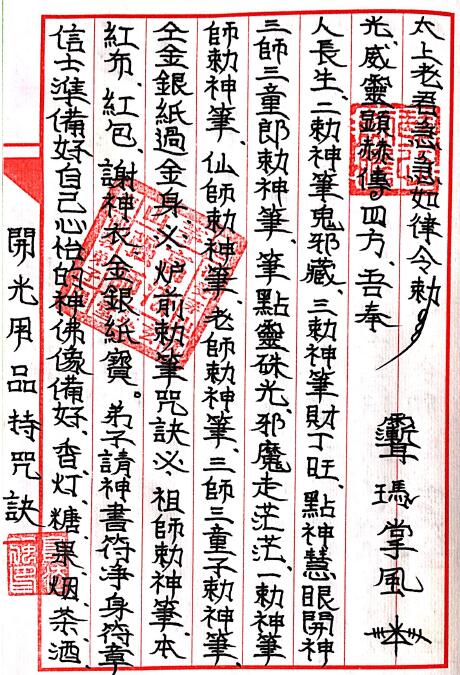 開光用品持咒訣
信士準備好自己心怡的神佛像備好、香灯、糖果烟、茶酒、
紅布、紅包、謝神衣金銀紙寶。弟子請神書符淨身符章
仝金銀紙過金身必炉前勅筆咒訣必 祖師勅神筆、本
師勅神筆、仙師勅神筆、老師勅神筆、三師三童子勅神筆、
三師三童郎勅神筆、筆點靈硃光、邪魔走茫茫、一勅神筆
人長生、二勅神筆鬼邪藏、三勅神筆財丁旺、點神慧眼開神
光、威靈顕赫傳四方、吾奉
太上老君急急如律令勅
瑪掌風